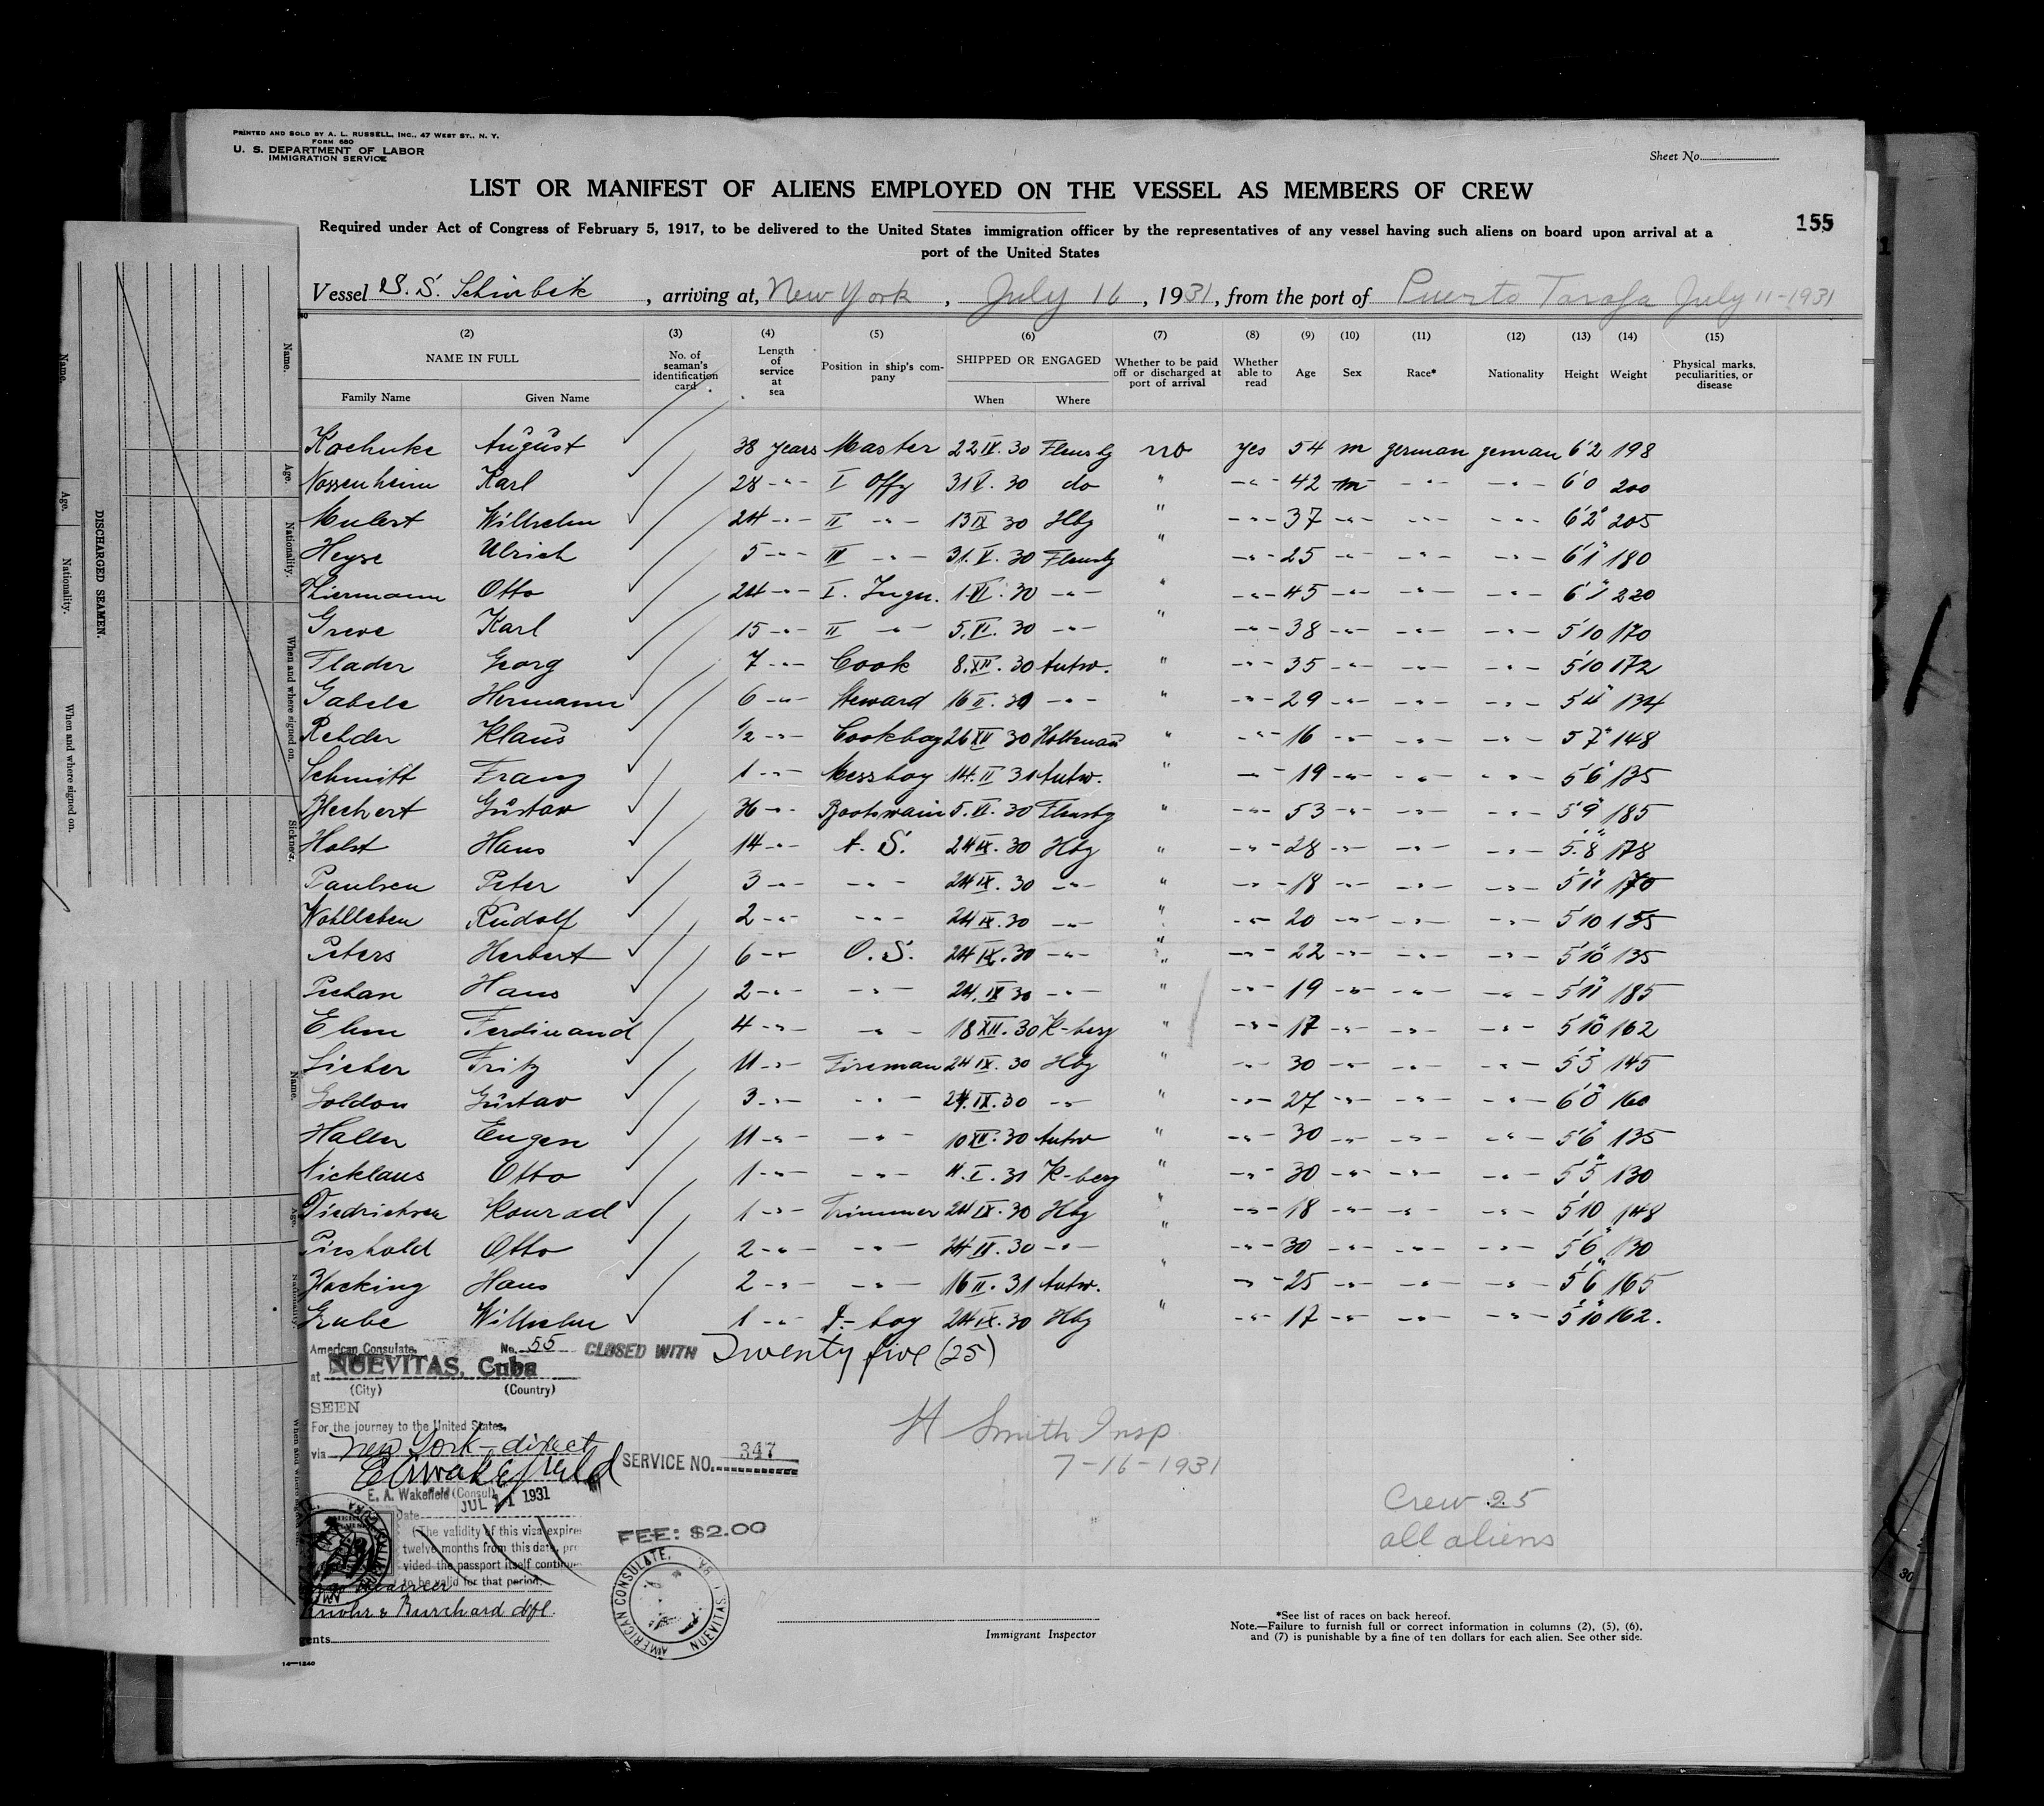 PRINTED AND SOLD BY A. L. RUSSELL, INC., 47 WEST ST., N. Y.
FORM 680
U. S. DEPARTMENT OF LABOR
IMMIGRATION SERVICE
Sheet No.
LIST OR MANIFEST OF ALIENS EMPLOYED ON THE VESSEL AS MEMBERS OF CREW
155
Required under Act of Congress of February 5, 1917, to be delivered to the United States immigration officer by the representatives of any vessel having such aliens on board upon arrival at a
port of the United States
Vessel S. S. Schinbek, arriving at, New York, July 16, 1931, from the port of Puerto Tarafa July 11-1931
(2) (3) (4) (5) (6) (7) (8) (9) (10) (11) (12) (13) (14) (15)
NAME IN FULL No. of seaman's identification card Length of service at sea Position in ship's company SHIPPED OR ENGAGED Whether to be paid off or discharged at port of arrival Whether able to read Age Sex Race* Nationality Height Weight Physical marks, peculiarities, or disease
Family Name Given Name When Where
August 38 years Master 22 IV. 30 Flensbg no yes 54 m german german 6'2 198
Nossenheim Karl 28 -"- I Offz 31 V. 30 do " -"- 42 m -"- -"- 6'0 200
Mulert Wilhelm 24 -"- II -"- 13 IX 30 Hbg " -"- 37 -"- -"- -"- 6'2" 205
Heyse Ulrich 5 -"- III -"- 31. V. 30 Flensbg " -"- 25 -"- -"- -"- 6'1" 180
Otto 24 -"- I. Ingn. 1. VI. 30 -"- " -"- 45 -"- -"- -"- 6'1" 220
Greve Karl 15 -"- II -"- 5. VI. 30 -"- " -"- 38 -"- -"- -"- 5'10 170
Flader Georg 7 -"- Cook 8. XII. 30 Antw. " -"- 35 -"- -"- -"- 5'10 172
Gabele Hermann 6 -"- Steward 16 II. 30 -"- " -"- 29 -"- -"- -"- 5'4" 134
Rehder Klaus 1/2 -"- Cookboy 26 XII 30 Holtenau " -"- 16 -"- -"- -"- 5'7" 148
Schmitt Franz 1 -"- Messboy 14. II 31 Antw. " -"- 19 -"- -"- -"- 5'6" 135
Blechert Gustav 36 -"- Bootswain 5. VI. 30 Flensbg " -"- 53 -"- -"- -"- 5'9" 185
Holst Hans 14 -"- A. S. 24 IX. 30 Hbg " -"- 28 -"- -"- -"- 5'8" 178
Paulsen Peter 3 -"- -"- 24 IX. 30 -"- " -"- 18 -"- -"- -"- 5'11" 170
Wohlleben Rudolf 2 -"- -"- 24 IX. 30 -"- " -"- 20 -"- -"- -"- 5'10 155
Peters Herbert 6 -"- O. S. 24 IX. 30 -"- " -"- 22 -"- -"- -"- 5'10" 135
Pechan Hans 2 -"- -"- 24. IX 30 -"- " -"- 19 -"- -"- -"- 5'11" 185
Ehm Ferdinand 4 -"- -"- 18 XII. 30 K-berg " -"- 17 -"- -"- -"- 5'10" 162
Lieber Fritz 11 -"- Fireman 24 IX. 30 Hbg " -"- 30 -"- -"- -"- 5'5" 145
Goldon Gustav 3 -"- -"- 24. IX. 30 -"- " -"- 27 -"- -"- -"- 6'0" 160
Haller Eugen 11 -"- -"- 10 XII. 30 Antw " -"- 30 -"- -"- -"- 5'6" 135
Nicklaus Otto 1 -"- -"- 11. I. 31 K-berg " -"- 30 -"- -"- -"- 5'5" 130
Diedrichsen Konrad 1 -"- Trimmer 24 IX. 30 Hbg " -"- 18 -"- -"- -"- 5'10 148
Otto 2 -"- -"- 24 IX. 30 -"- " -"- 30 -"- -"- -"- 5'6" 130
Hocking Hans 2 -"- -"- 16 II. 31 Antw. " -"- 25 -"- -"- -"- 5'6" 165
Grube Wilhelm 1 -"- D.-boy 24 IX. 30 Hbg " -"- 17 -"- -"- -"- 5'10" 162.
American Consulate, No. 55 CLOSED WITH Twenty five (25)
at NUEVITAS, Cuba
(City) (Country)
SEEN
For the journey to the United States,
via New York - direct
E A Wakefield
SERVICE NO. 347
H Smith Insp
7-16-1931
E. A. Wakefield (Consul)
JUL 11 1931
Date
(The validity of this visa expires
twelve months from this date, pro
vided the passport itself continues
to be valid for that period.
FEE: $2.00
Crew 25
all aliens
AMERICAN CONSULATE, NUEVITAS,
Knohr & Burchard dfl.
gents
14-1240
Immigrant Inspector
*See list of races on back hereof.
Note.—Failure to furnish full or correct information in columns (2), (5), (6),
and (7) is punishable by a fine of ten dollars for each alien. See other side.
DISCHARGED SEAMEN.
Name.
Age.
Nationality.
When and where signed on.
Name.
Age.
Nationality.
When and where signed on.
Sickness.
Name.
Age.
Nationality.
When and where signed on.
30